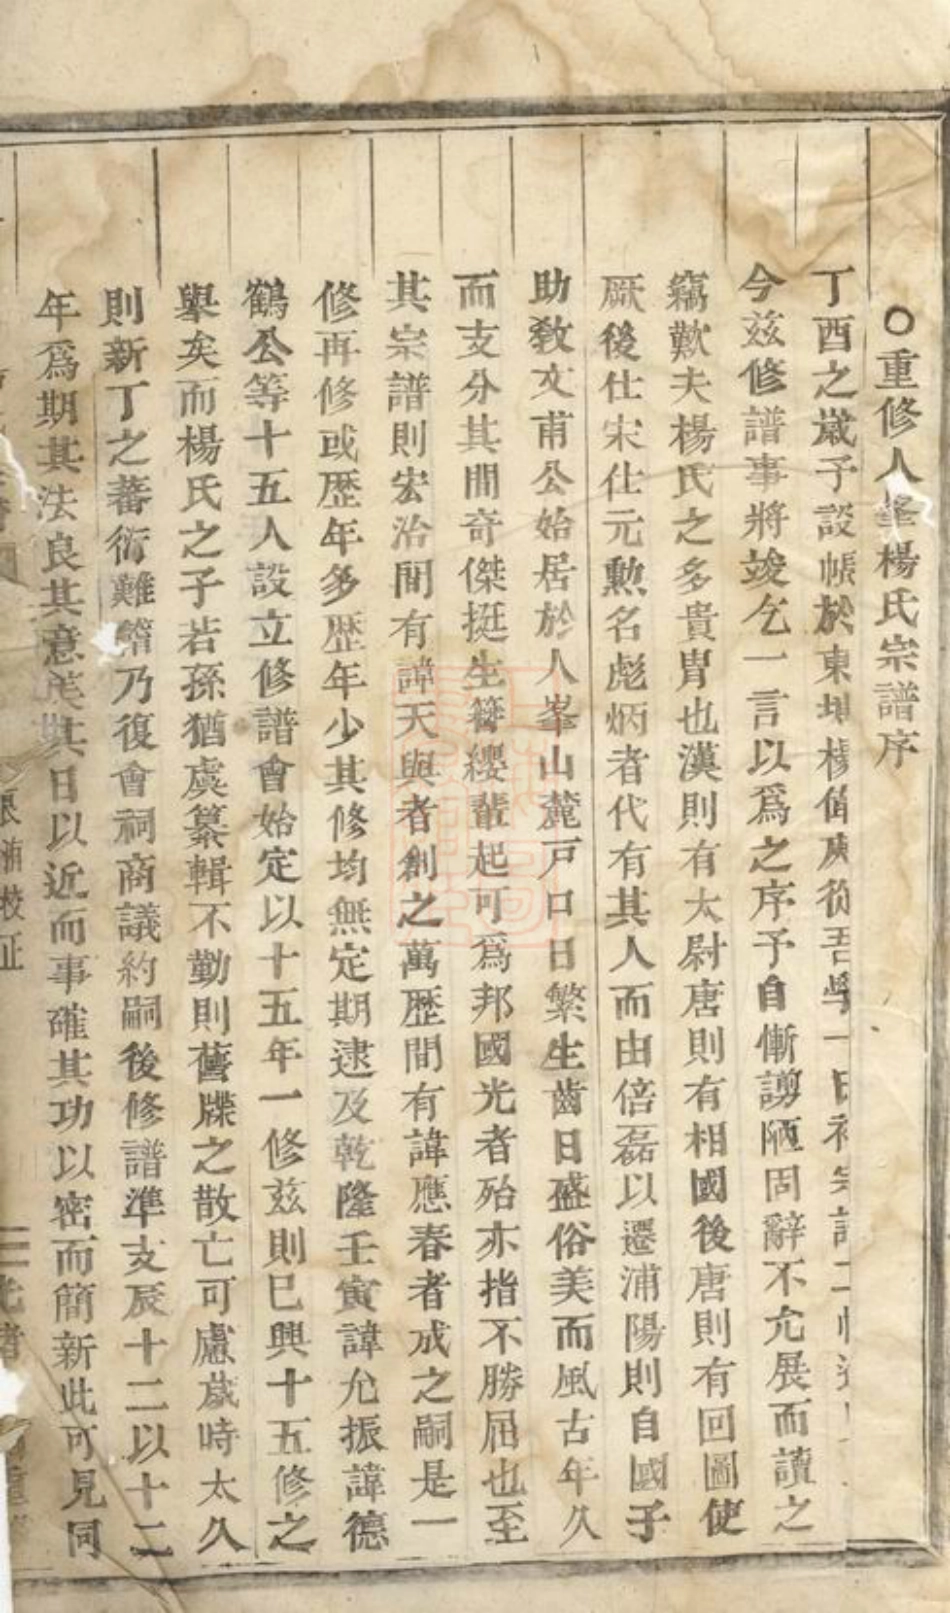 ○重修人峯楊氏宗譜序
丁酉之歲予設帳於東 楊 庚從吾學一日
今茲修譜事將竣乞一言以爲之序予自慚謭陋固辭不允展而讀之
竊歎夫楊氏之多貴胄也漢則有太尉唐則有相國後唐則有回圖使
厥後仕宋仕元勲名彪炳者代有其人而由倍磊以遷浦陽則自國子
助敎文甫公始居於人峯山麓戸口日繁生齒日盛俗美而風古年久
而支分其間奇傑挺生簪纓輩起可爲邦國光者殆亦指不勝屈也至
其宗譜則宏治間有諱天與者創之萬歷間有諱應春者成之嗣是一
修再修或歷年多歷年少其修均無定期逮及乾隆壬寅諱允振諱德
鶴公等十五人設立修譜會始定以十五年一修茲則已興十五修之
舉矣而楊氏之子若孫猶虞纂輯不勤則舊牒之散亡可慮歲時太久
則新丁之蕃衍難籍乃復會祠商議約嗣後修譜準支辰十二以十二
年爲期其法良其意美其日以近而事確其功以密而簡新此可見同